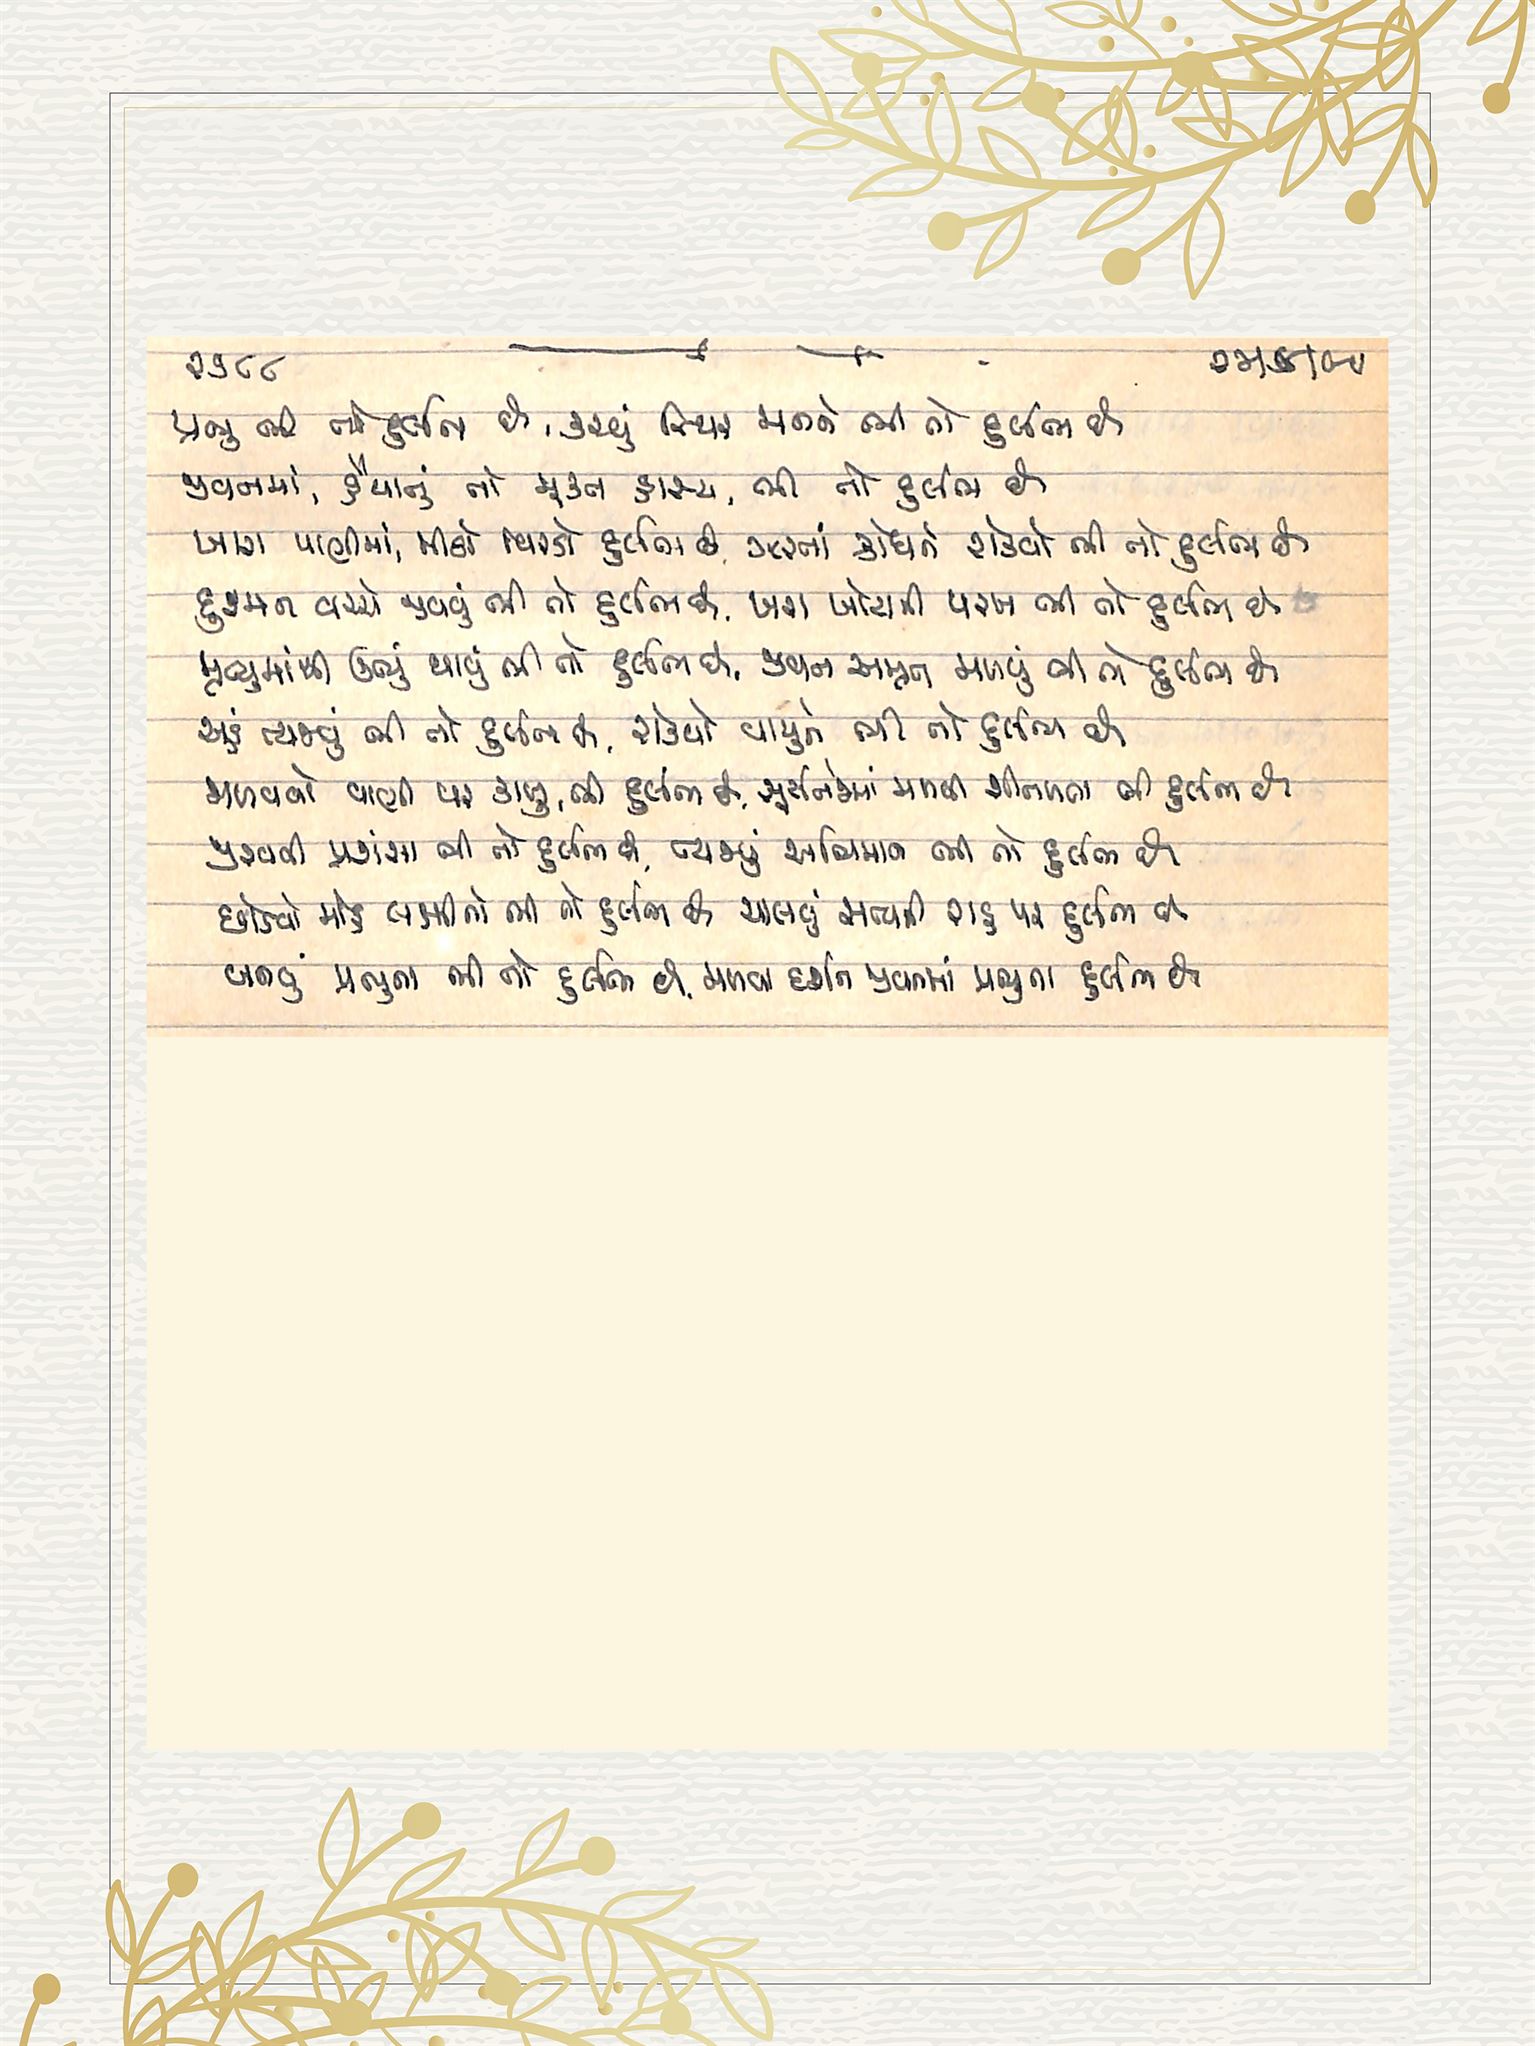 ૨૭૮૮
પ્રભુ ભી તો દુર્લભ છે, કરવું સ્થિર મનને ભી તો દુર્લભ છે
જીવનમાં, હૈયાનું તો મુક્ત હાસ્ય, ભી તો દુર્લભ છે
ખારા પાણીમાં, મીઠો વિરડો દુર્લભ છે, ઉરનાં ક્રોધને રોકવો ભી તો દુર્લભ છે
દુશ્મન વચ્ચે જીવવું ભી તો દુર્લભ છે, ખરા ખોટાની પરખ ભી તો દુર્લભ છે
મૃત્યુમાંથી ઉભું થાવું ભી તો દુર્લભ છે, જીવન અમૃત મળવું ભી તો દુર્લભ છે
અહં ત્યજવું ભી તો દુર્લભ છે, રોકવો વાયુને ભી તો દુર્લભ છે
મળવવો વાણી પર કાબુ, ભી દુર્લભ છે, સૂર્યતેજમાં મળવી શીતળતા ભી દુર્લભ છે
જીરવવી પ્રશંસા ભી તો દુર્લભ છે, ત્યજવું અભિમાન ભી તો દુર્લભ છે
છોડવો મોહ લક્ષ્મીનો ભી તો દુર્લભ છે ચાલવું સત્યની રાહ પર દુર્લભ છે
બનવું પ્રભુના ભી તો દુર્લભ છે, મળવા દર્શન જીવનમાં પ્રભુના દુર્લભ છે